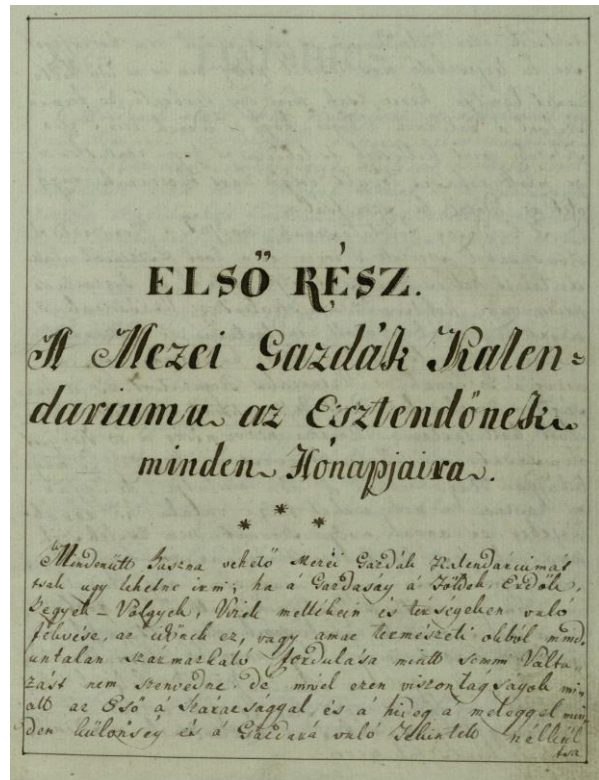 ELSŐ RÉSZ.
A Mezei Gazdák Kalen=
dariuma az Esztendőnek
minden Hónapjaira.
* * *
Mindenütt haszna vehető Mezei Gazdák Kalendáriumát
tsak ugy lehetne irni; ha á Gazdaság á Földek, Erdők,
Hegyek-Völgyek, Vizek mellékein és térségeken való
fekvése, az időnek ez, vagy amaz természeti okból mind,
untalan származható fordulása miatt semmi Válto,
zást nem szenvedne. de mivel ezen viszontagságok mi,
att az Eső á szárasággal és á hideg á meleggel min
den külömség és á Gazdára való Tekintett nélkül